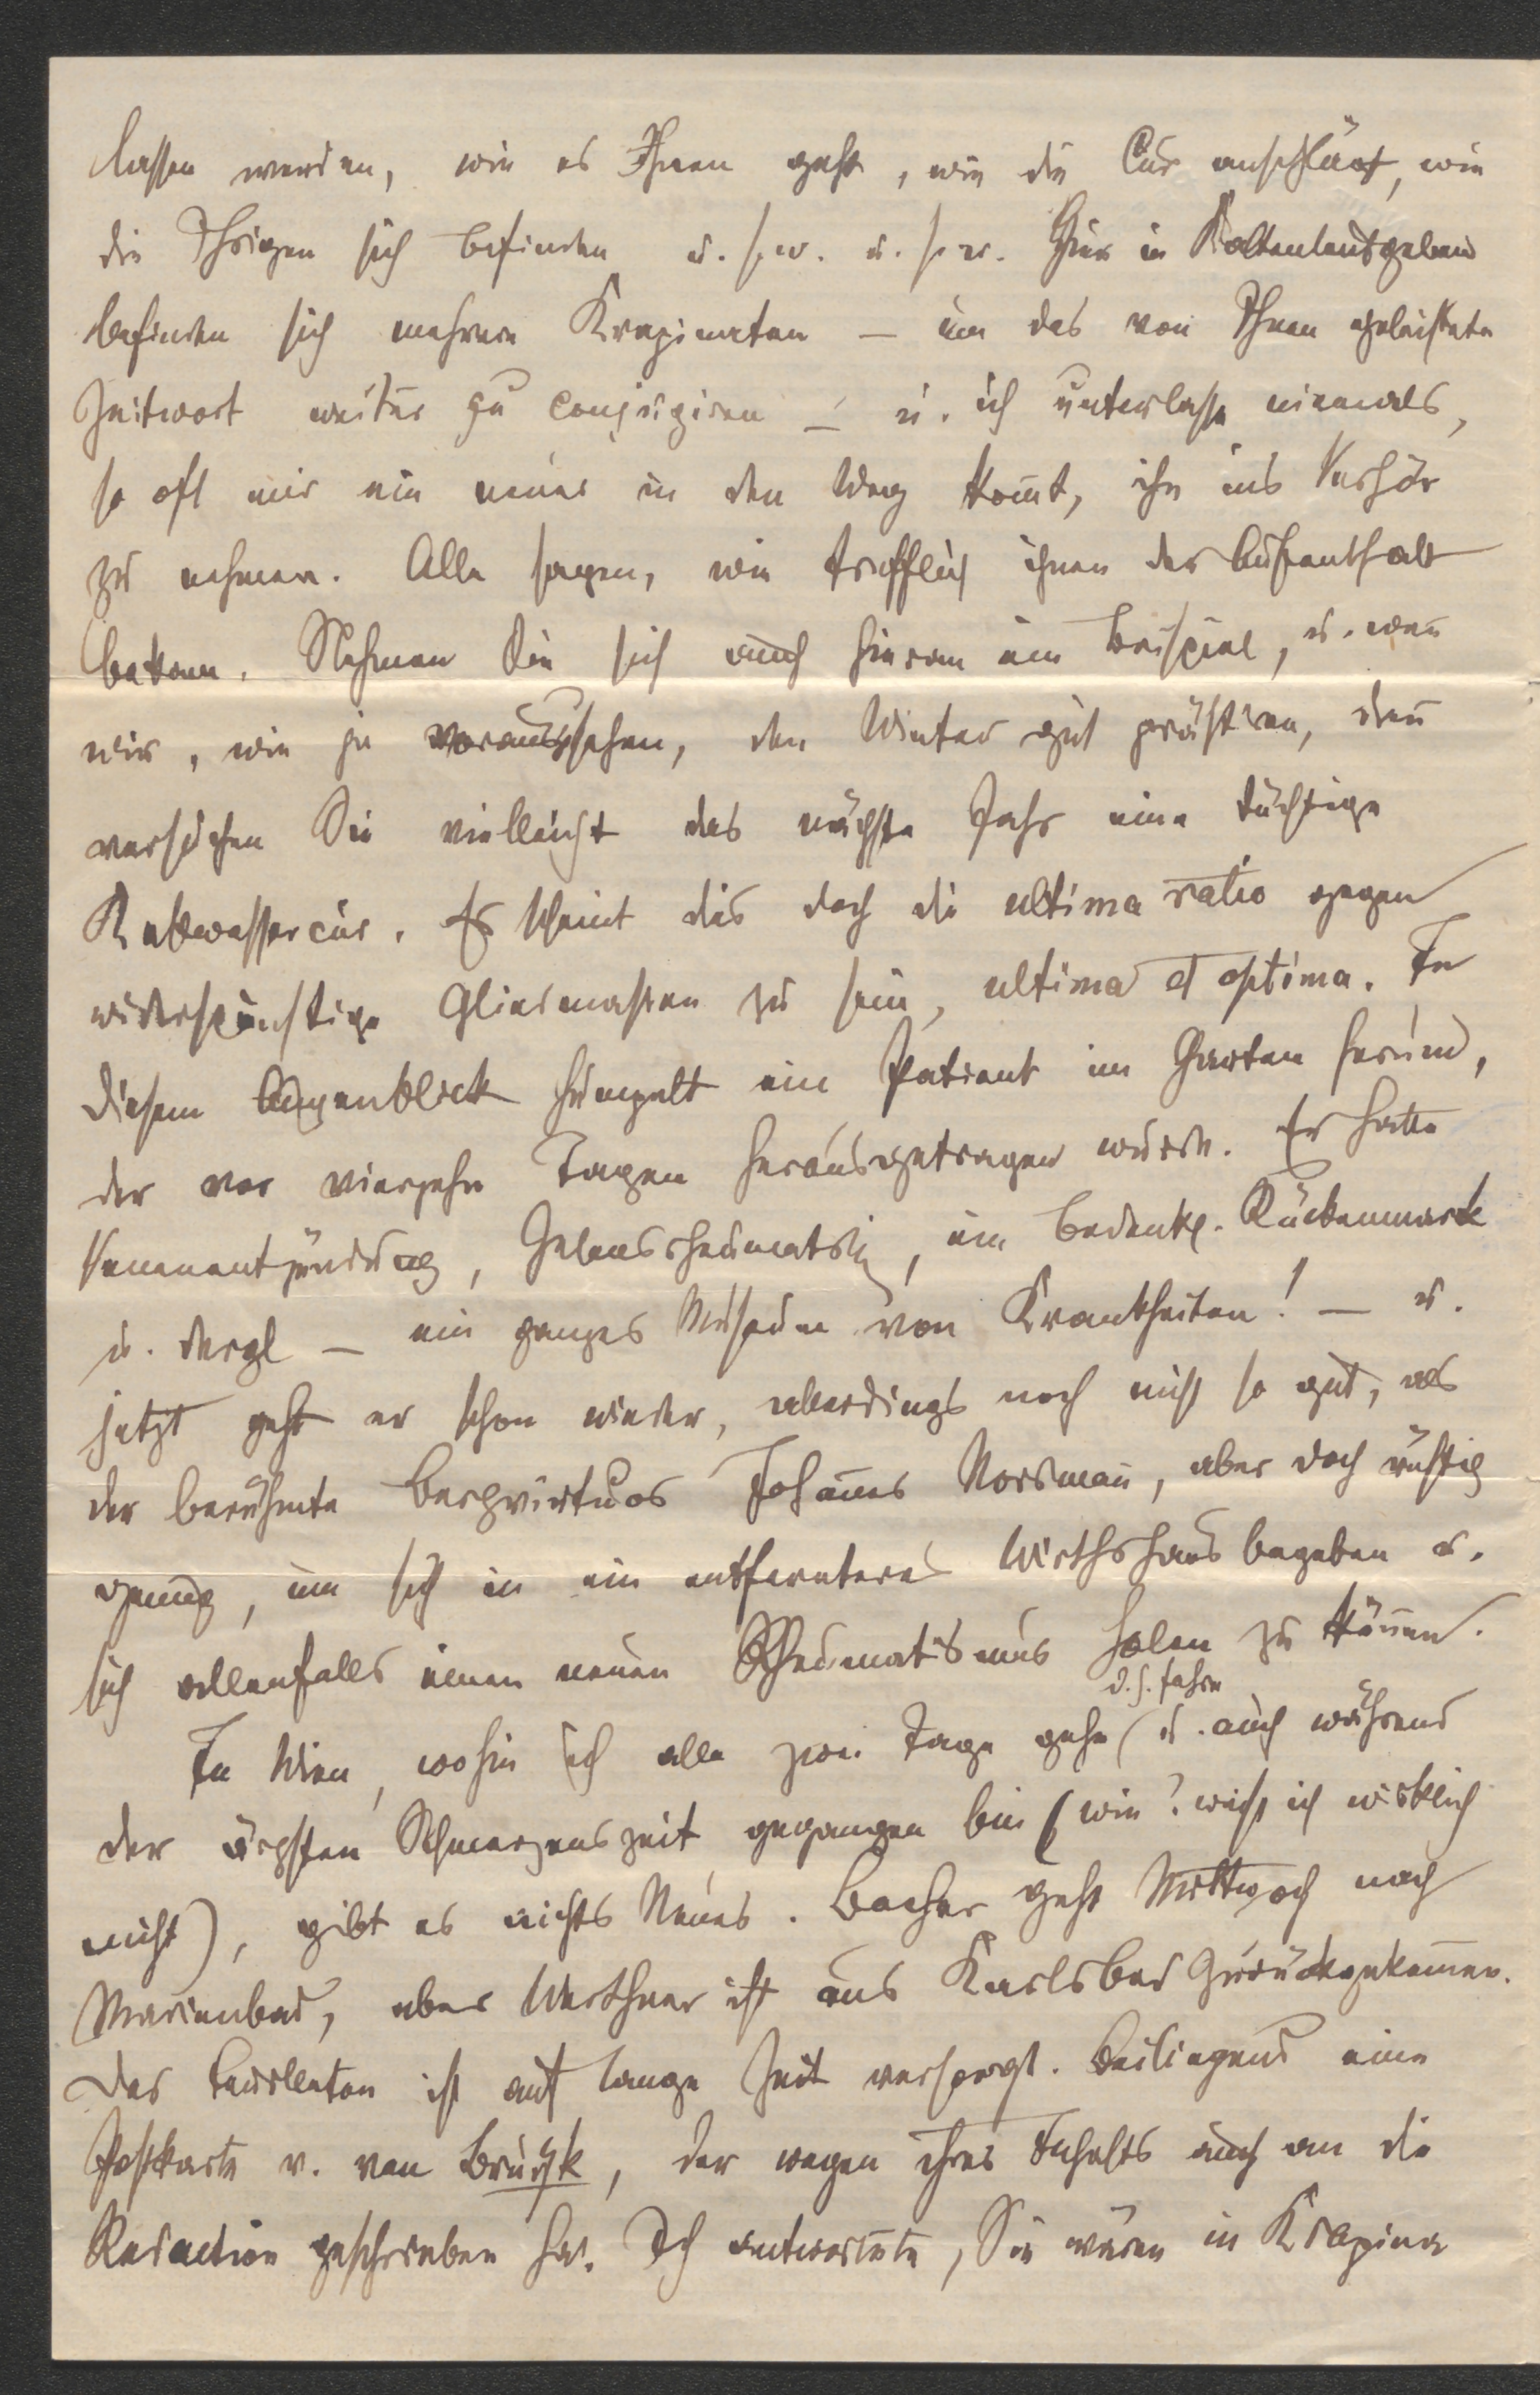 lassen werden, wie es Ihnen geht, wie die Cur anschlägt, wie
die Ihrigen sich befinden u. s. w. u. s. w. Hier in Kaltenleutgeben
befinden sich mehrere Krapinaten — um das von Ihnen geleistete
Zeitwort weiter zu conjugiren — u. ich unterlasse niemals,
so oft mir ein neuer in den Weg kom̄t, ihn ins Verhör
zu nehmen. Alle sagen, wie trefflich ihnen der Aufenthalt
bekam. Nehmen Sie sich auch hieran ein Beispiel, u. wen̄
wir, wie zu voraussehen, den Winter gut prästiren, dan̄
versuchen Sie vielleicht das nächste Jahr eine tüchtige
Kaltwassercur. Es scheint dies doch die ultima ratio gegen
widerspenstige Gliedmassen zu sein, ultima et optima. In
diesem Augenblick humpelt ein Patient im Garten herum,
der vor vierzehn Tagen herausgetragen wurde. Er hatte
Venenentzündung, Gelenksrheumatism, ein bedenkl. Rückenmark
u. dergl — ein ganzes Museum von Krankheiten! — u.
jetzt geht er schon wieder, allerdings noch nicht so gut, als
der berühmte Bergvirtuos Johan̄es Nordman̄, aber doch rüstig
genug, um sich in ein entfernteres Wirthshaus begeben u.
sich allenfalls einen neuen Rheumatismus holen zu kön̄en.
In Wien, wohin ich alle zwei Tage gehe (d. h. fahre u. auch während
der ärgsten Schmerzenszeit gegangen bin (wie? weiß ich wirklich
nicht), gibt es nichts Neues. Bacher geht Mittwoch nach
Marienbad, aber Werthner ist aus Karlsbad zurückgekom̄en.
Das Feuilleton ist auf lange Zeit versorgt. Beiliegend eine
Postkarte v. van Bruyk, der wegen ihres Inhalts auch an die
Redaction geschrieben hat. Ich antwortete, Sie wären in Krapina